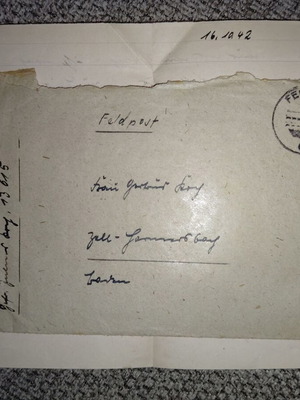 16.10.42
Feldpost
Frau Gertrud Koch
Zell-Harmersbach
Baden
13615